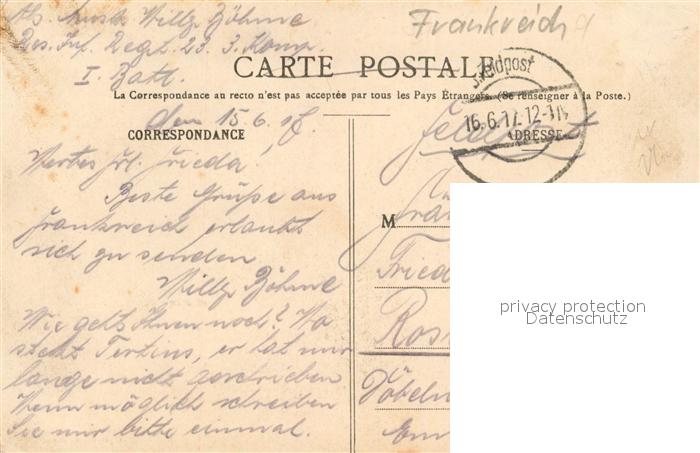 Abs. Musk. Willy Böhme
Res. Inf. Regt. 23. 3. Komp.
I. Batl.
Frankreich
CARTE POSTALE
La Correspondance au recto n'est pas acceptée par tous les Pays Étrangers. (Se renseigner à la Poste.)
Feldpost
16.6.17. 12-1
den 15.6.17.
CORRESPONDANCE
ADRESSE
Wertes Frl. Frieda!
Beste Grüße aus
Frankreich erlaubt
sich zu senden
Willy Böhme
Wie gehts Ihnen noch? Wo
steckt Tertius, er hat mir
lange nicht geschrieben
Wenn möglich schreiben
Sie mir bitte einmal.
M
Fried
Ross
Döbeln
privacy protection
Datenschutz